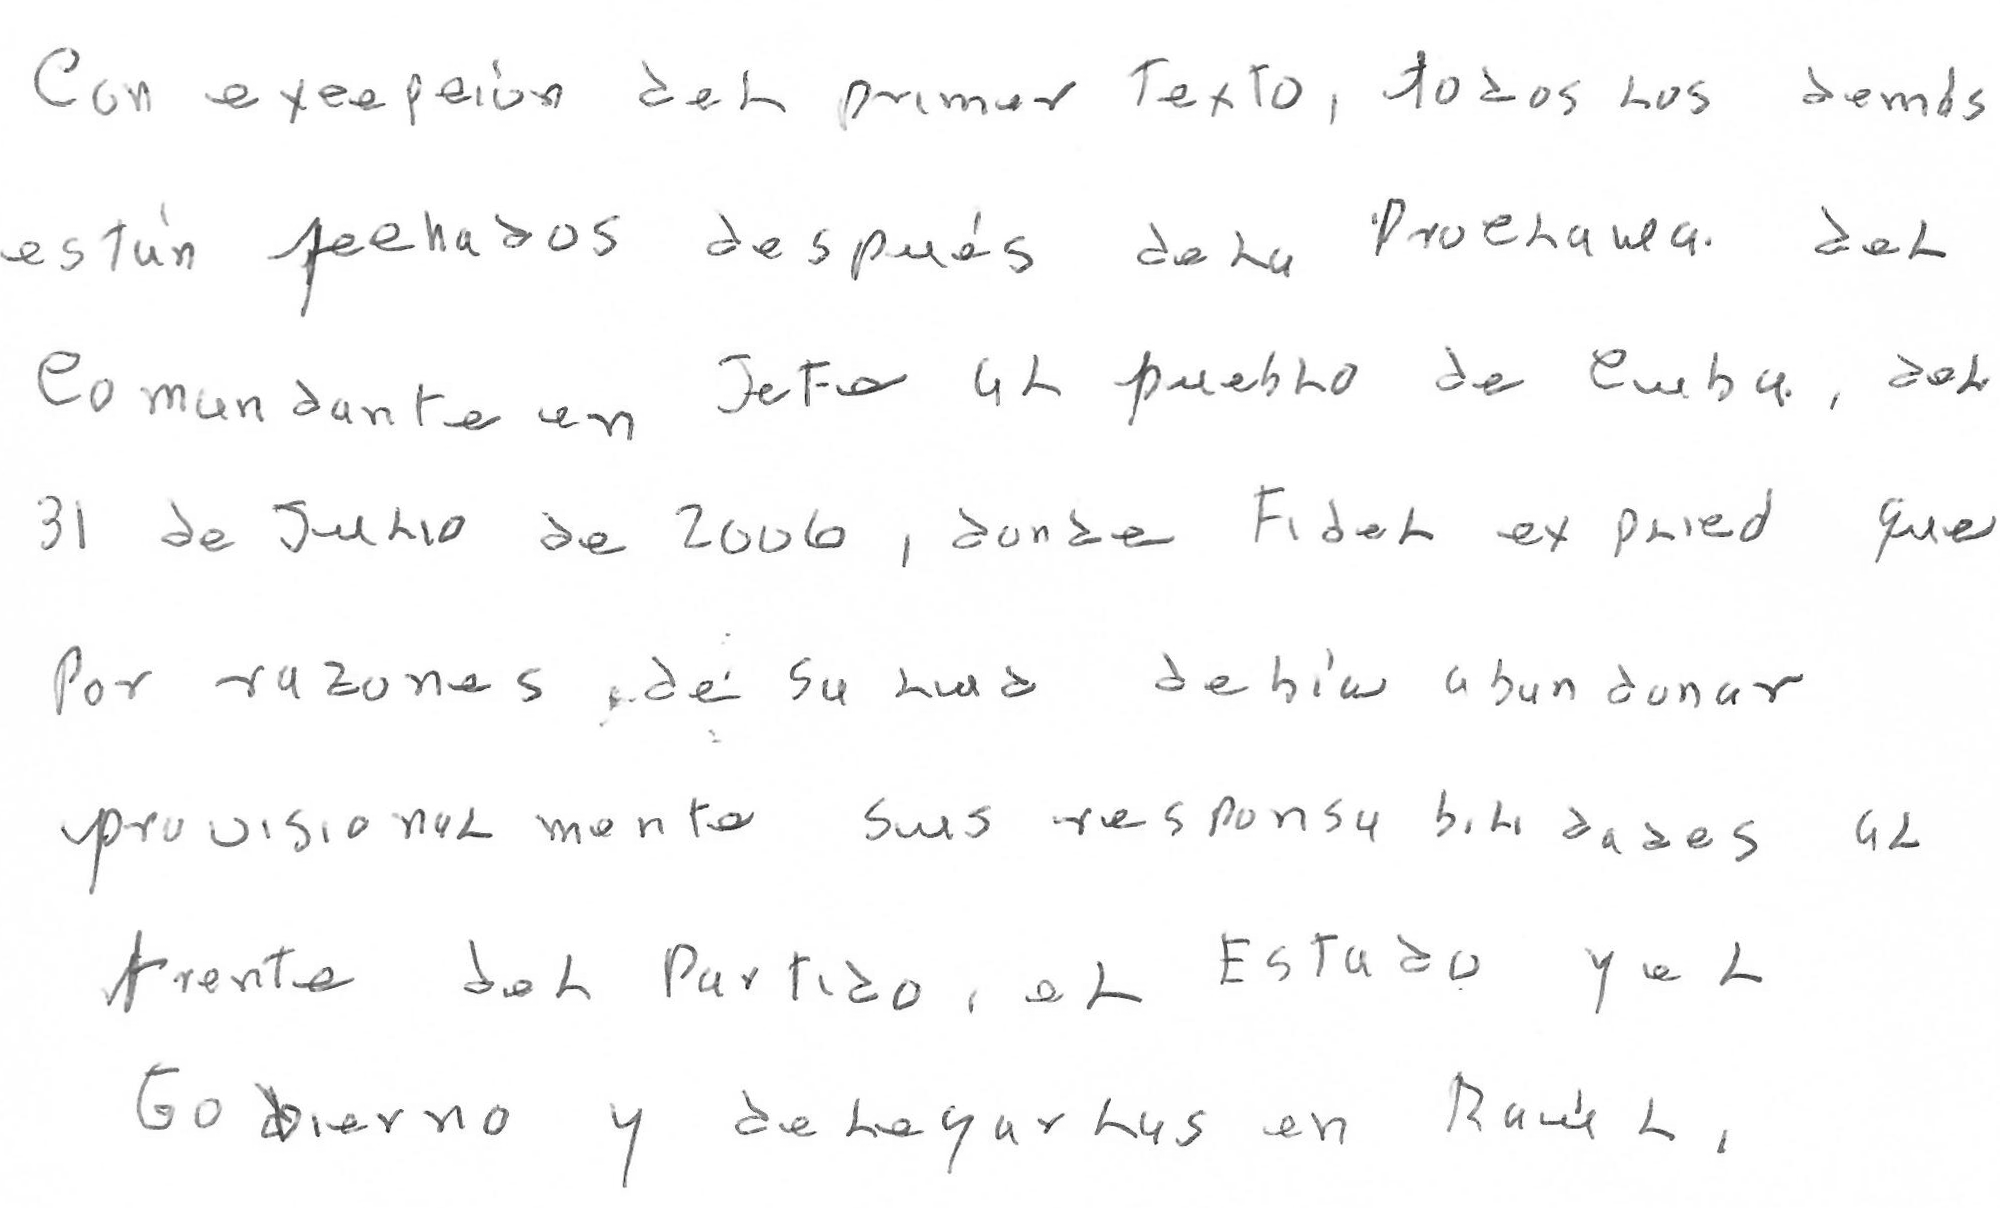 Con excepción del primer Texto, todos los demás
están fechados después de la Proclama del
Comandante en Jefe al pueblo de Cuba, del
31 de Julio de 2006, donde Fidel explicó que
Por razones de salud debía abandonar
provisionalmente sus responsabilidades al
frente del Partido, el Estado y el
Gobierno y delegarlas en Raúl,